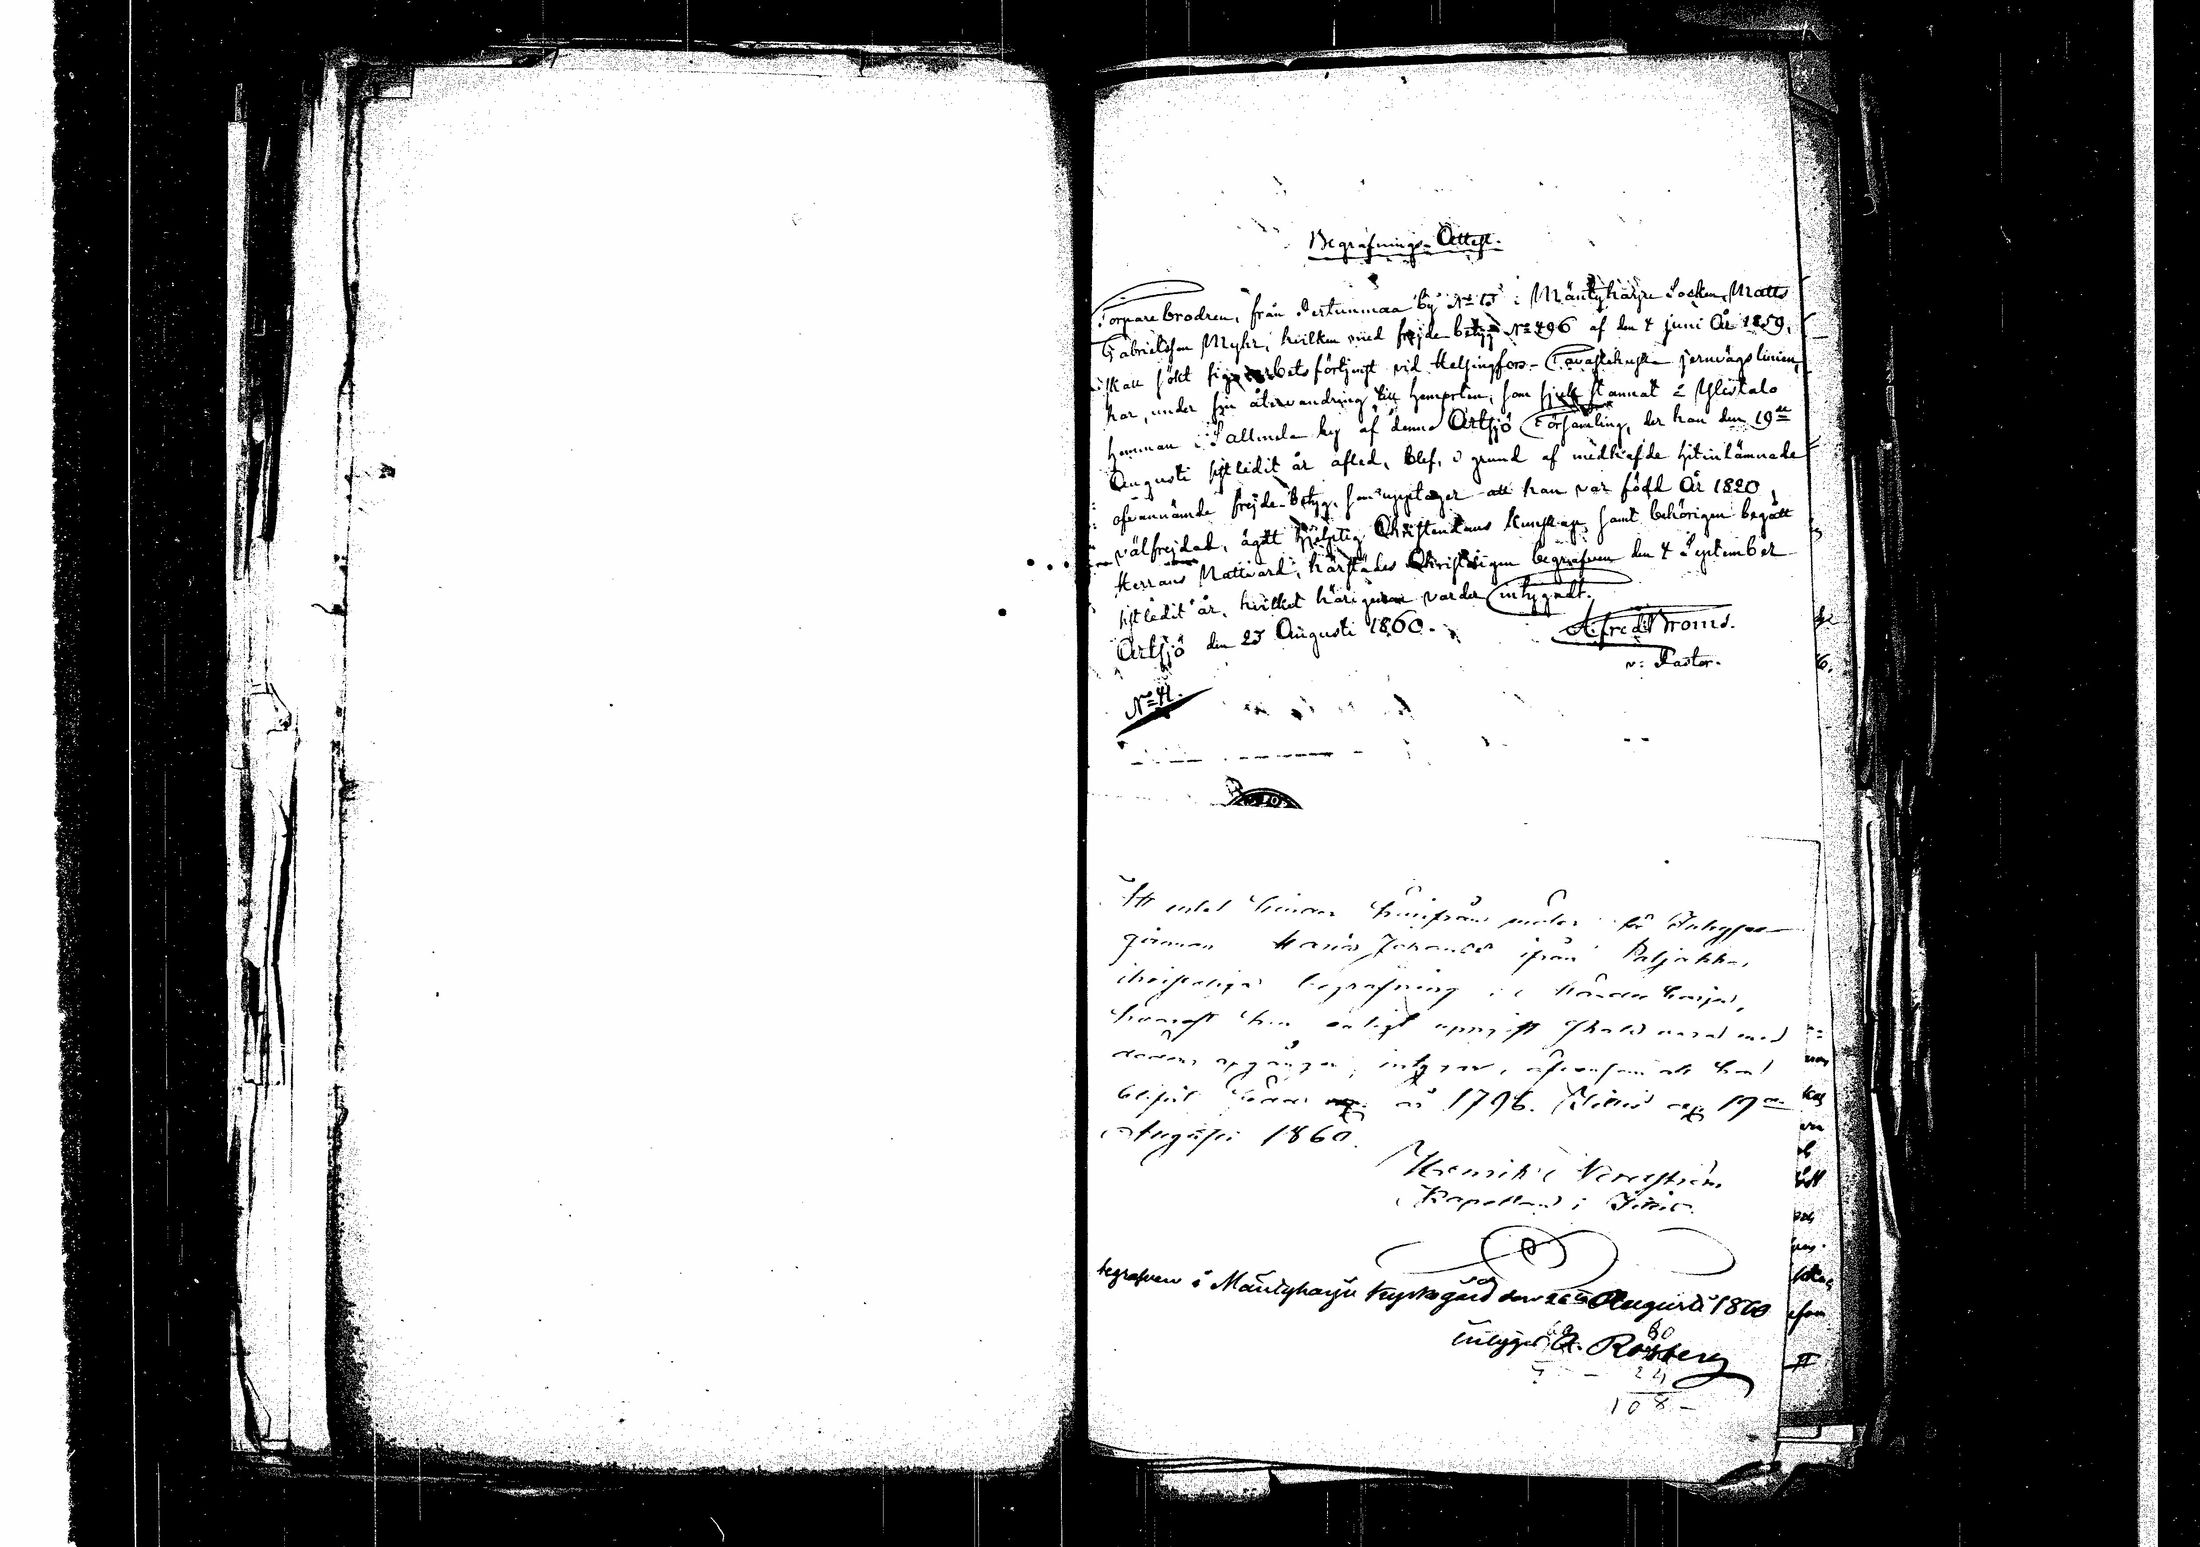 Begrafnings-Attest.
Torparebrodren, från Pertunmaa by No 15 i Mäntyharju Socken, Matts
Gabrielsson Myhr, hvilken med frejdebetyg No 496 af den 4 juni År 1859,
skall sökt sig arbetsförtjenst vid Helsingfors-Tavastehuska jernvägslinien,
har, under sin återvandring till hemorten, som sjuk stannat å Ylöstalo
hemman i Sallmela by af denna Artsjö Församling, der han den 19de
Augusti sistledit år afled, blef, i grund af medhafde hitinlämnade
ofvannämde frejde-betyg, som upptager att han var född År 1820,
välfrejdad, ägt hjelplig Christendoms kunskap, samt behörigen begått
Herrans Nattvard, härstädes Christligen begrafven den 4 September
sistledit år, hvilket härigenom varder intygadt.
Artsjö den 23 Augusti 1860.
Alfred Broms.
v: Pastor.
No 41.
Att intet hinder härifrån möter för
Maria ifrån Paljakka,
christeliga begrafning i Mäntyharju,
hvarest hon enligt uppgift skall varit med
döden afgången, intygar, äfvensom att hon
blifvit född år 1796. Jittis 17de
Augusti 1860.
Henrik
Kapellan i Jittis.
begrafven i Mäntyharju kyrkogård den 26 Augusti 1860
intygar Rosberg
80
24
108-